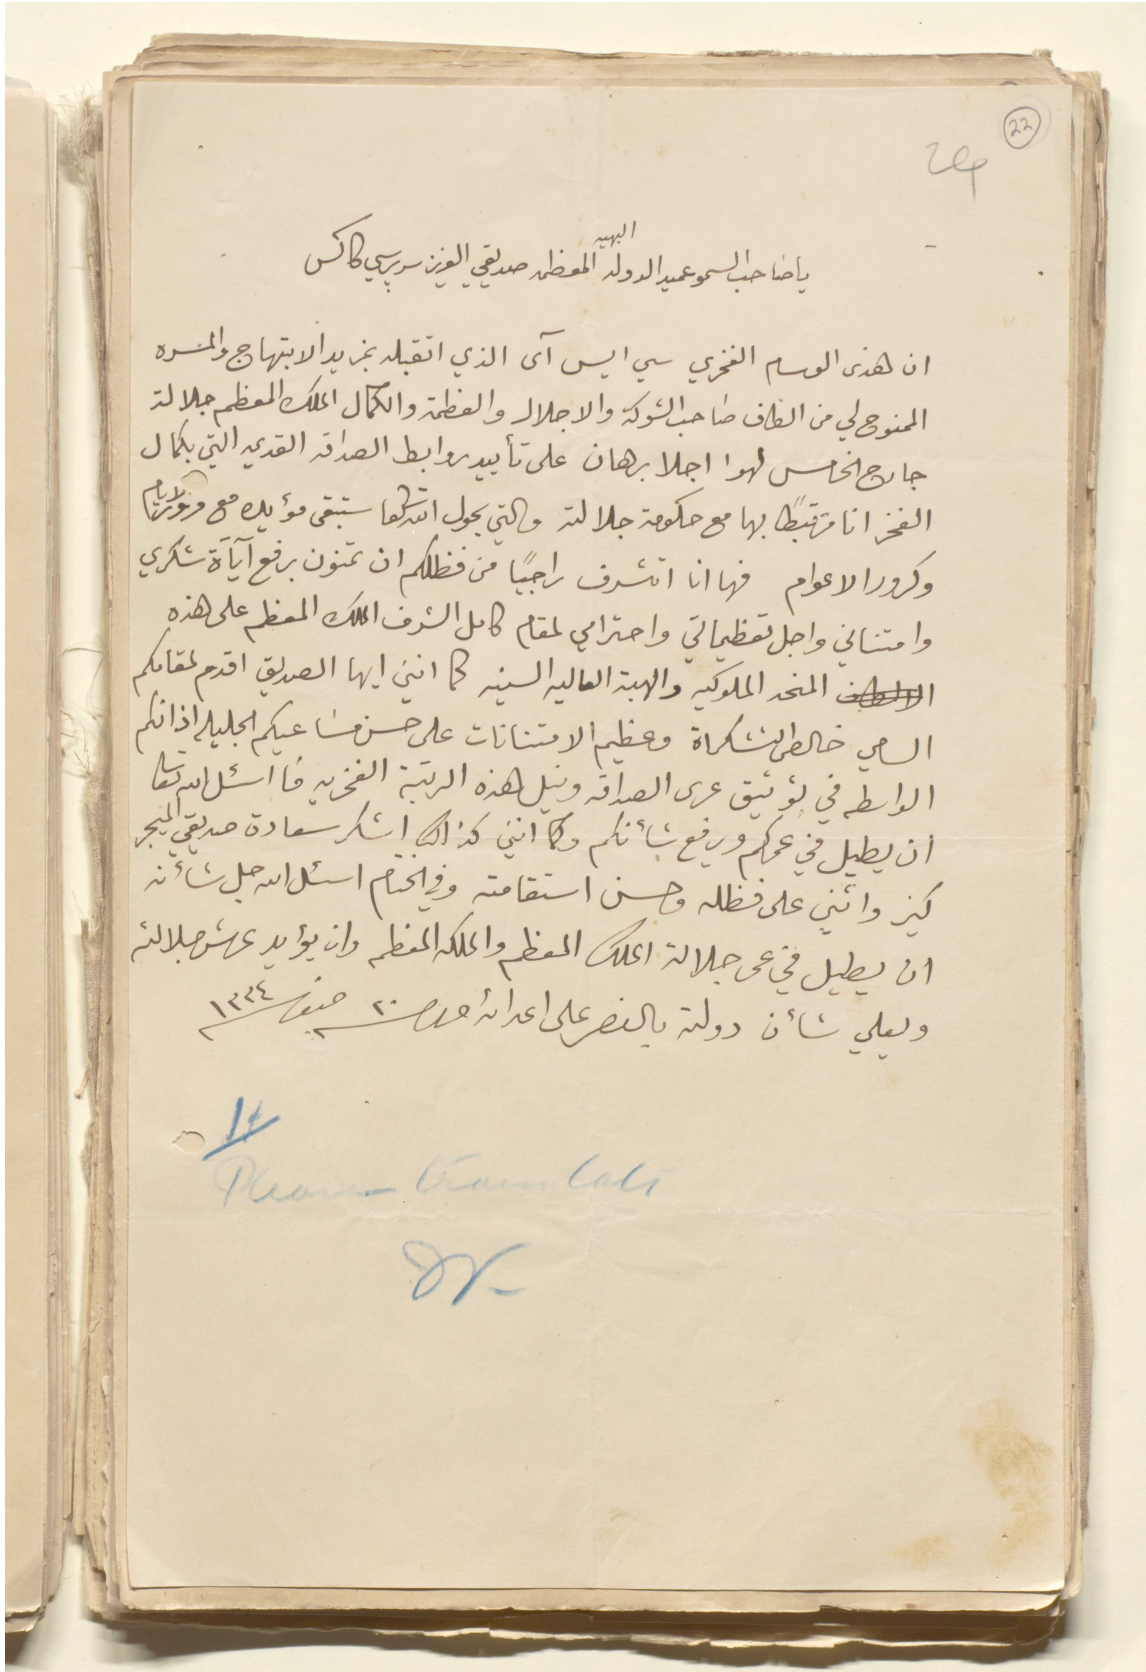 22
البهيه
ياصاحب السمو عميد الدولة المعظمه صديقي العزيز سر پرسي كاكس
ان هذى الوسام الفخري سي ايس آى الذي اتقبله بمزيد الابتهاج والمسره
الممنوح لي من الطاف صاحب الشوكة والاجلال والعظمة والكمال الملك المعظم جلالة
جارج الخامس لهوا اجلا برهان على تأييد روابط الصداقه القديمه التي بكمال
الفخر انا مرتبطًا بها مع حكومة جلالته والتي بحول الله وقوته ستبقى مؤيده مع مرور الايام
وكرور الاعوام فها انا اتشرف راجيًا من فظلكم ان تمنون برفع آيآة شكري
وامتناني واجل تعظيماتي واحترامي لمقام كامل الشرف الملك المعظم على هذه
المنحه الملوكيه والهبة العاليه السنيه كما انني ايها الصديق اقدم لمقامكم
السامي خالص التشكراة وعظيم الامتنانات على حسن مساعيكم الجليله اذ انكم
الواسطه في توثيق عرى الصداقه ونيل هذه الرتبة الفخريه فأاسئل الله تعالى
ان يطيل في عمركم ويرفع بشأنكم وكما انني كذالك اشكر سعادة صديقي الميجر
كيز واثني على فظله وحسن استقامته وفي الختام اسئل الله جل شأنه
ان يطيل في عمر جلالة الملك المعظم والملكه المعظمه وان يؤايد عرش جلالته
ويعلي شأن دولته بالنصر على اعدائه حرر ٢٠ صفر ١٣٣٤
Please translate